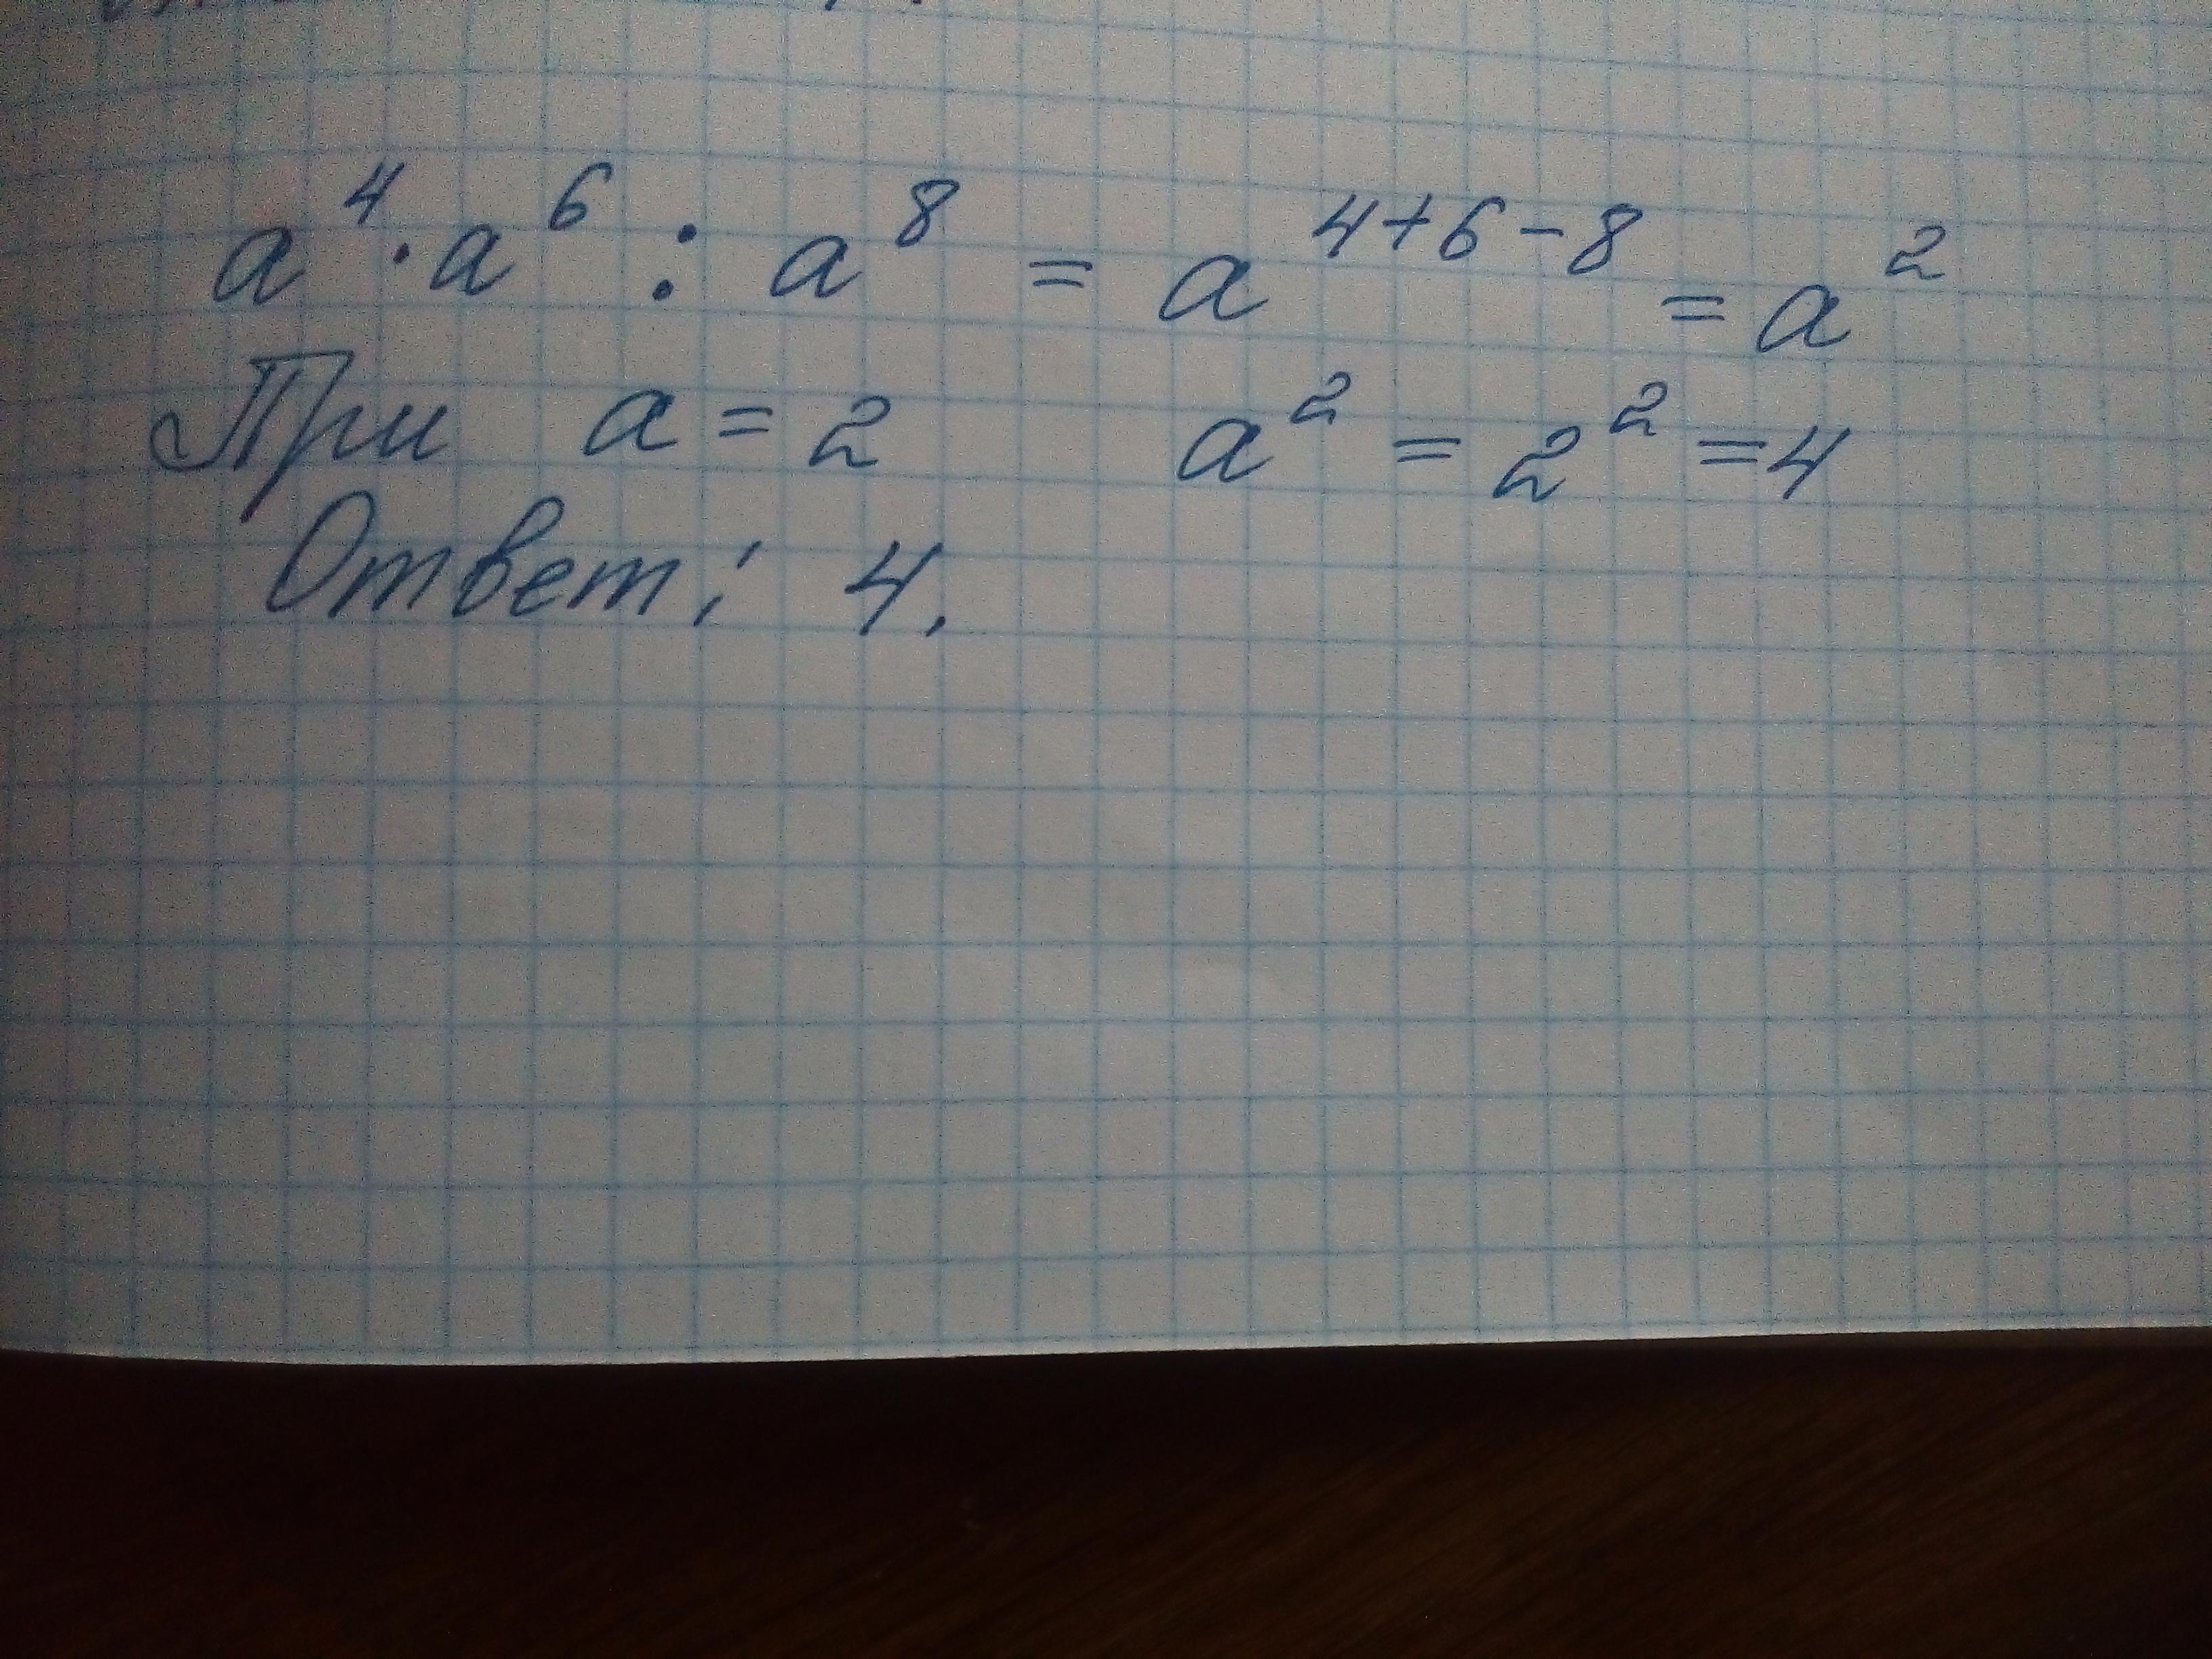 a⁴·a⁶ : a⁸ = a⁴⁺⁶⁻⁸ = a²
При a = 2 a² = 2² = 4
Ответ: 4.